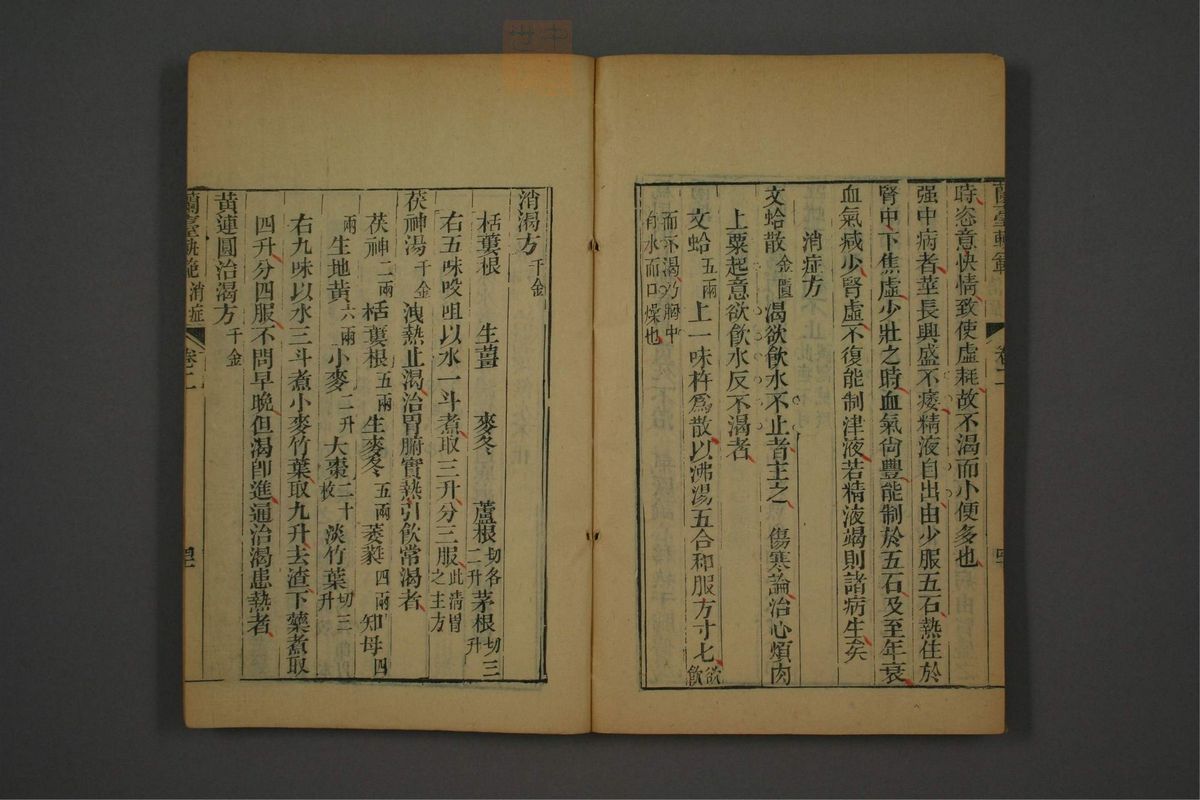 蘭臺軌範 卷二
時恣意快情致使虛耗故不渴而小便多也
强中病者莖長興盛不痿精液自出由少服五石熱住於
腎中下焦虛少壯之時血氣尙豐能制於五石及至年衰
血氣減少腎虛不復能制津液若精液竭則諸病生矣
消症方
文蛤散金匱 渴欲飮水不止者主之 傷寒論治心煩肉
上粟起意欲飮水反不渴者
文蛤五兩 上一味杵爲散以沸湯五合和服方寸匕欲飮
而不渴乃胸中
有水而口燥也
消渴方千金
栝蔞根 生薑 麥冬 蘆根切各二升 茅根切三升
右五味㕮咀以水一斗煮取三升分三服此清胃之主方
茯神湯千金 洩熱止渴治胃腑實熱引飮常渴者
茯神二兩 栝蔞根五兩 生麥冬五兩 葳蕤四兩 知母四
兩 生地黃六兩 小麥二升 大棗二十枚 淡竹葉切三升
右九味以水三斗煮小麥竹葉取九升去渣下藥煮取
四升分四服不問早晚但渴卽進通治渴患熱者
黃連圓治渴方千金
蘭臺軌範 消症 卷二